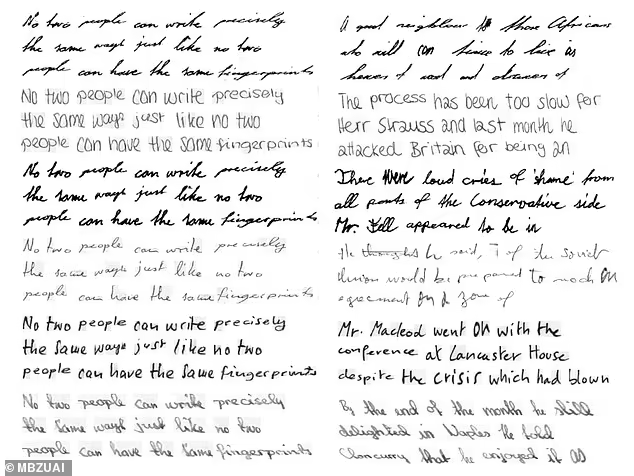 No two people can write precisely
the same ways just like no two
people can have the same fingerprints
No two people can write precisely
the same ways just like no two
people can have the same fingerprints
No two people can write precisely
the same ways just like no two
people can have the same fingerprints
No two people can write precisely
the same ways just like no two
people can have the same fingerprints
No two people can write precisely
the same ways just like no two
people can have the same fingerprints
No two people can write precisely
the same ways just like no two
people can have the same fingerprints
A good neighbour to those Africans
who will continue to live as
hewers of wood and drawers of
The process has been too slow for
Herr Strauss and last month he
attacked Britain for being an
There were loud cries of 'shame' from
all parts of the Conservative side
Mr. appeared to be in
He thought he said, of the Soviet
Union would be prepared to reach an
agreement on a zone of
Mr. Macleod went on with the
conference at Lancaster House
despite the crisis which had blown
By the end of the month he still
delighted in Naples he told
Cloncurry that he enjoyed it as
© MBZUAI